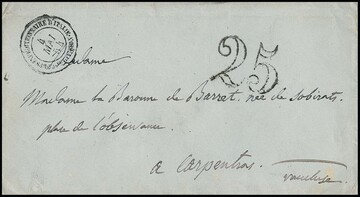 4
MAI
25
Madame
Madame la Baronne de Barret, née de Sobirats
place de l'observance.
a Carpentras
vaucluse